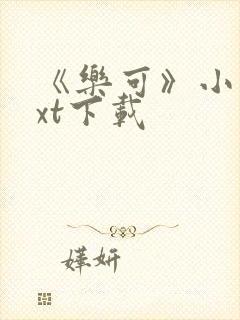 《樂可》小
xt下載
嬅妍